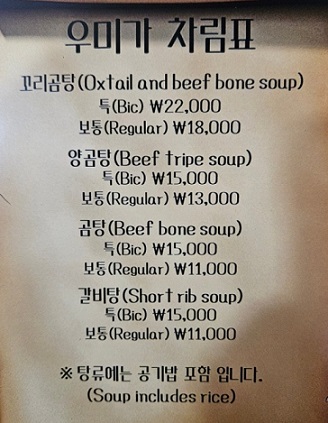 우미가 차림표
꼬리곰탕(Oxtail and beef bone soup)
특(Bic) ₩22,000
보통(Regular) ₩18,000
양곰탕(Beef tripe soup)
특(Bic) ₩15,000
보통(Regular) ₩13,000
곰탕(Beef bone soup)
특(Bic) ₩15,000
보통(Regular) ₩11,000
갈비탕(Short rib soup)
특(Bic) ₩15,000
보통(Regular) ₩11,000
※ 탕류에는 공기밥 포함 입니다.
(Soup includes rice)